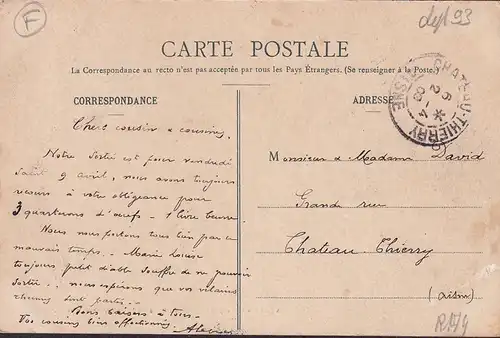 F
dept 93
CARTE POSTALE
La Correspondance au recto n'est pas acceptée par tous les Pays Étrangers. (Se renseigner à la Poste)
CORRESPONDANCE
Chers cousin & cousines,
Notre sortie est pour vendredi
saint 9 avril, nous avons toujours
recours à votre obligeance pour
3 quarterons d'œufs - 1 livre beurre
Nous nous portons tous bien par ce
mauvais temps. - Marie Louise
toujours petit diable souffre de ne pouvoir
sortir. nous espérons que vos vilains
rhumes sont partis.
Bons baisers à tous.
Vos cousins bien affectionnés.
ADRESSE
CHATEAU-THIERRY
AISNE
Monsieur & Madame David
Grande rue
Chateau Thierry
(aisne)